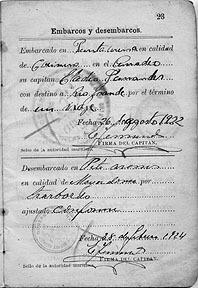 23
Embarcos y desembarcos.
Embarcado en Punta Arenas en calidad
de en el
su capitan Fernandez
con destino a Rio Grande por el término
de un viaje
Fecha 26 de agosto 1922
FIRMA DEL CAPITAN.
Sello de la autoridad marítima.
Desembarcado en Pto arenas
en calidad de Mayordomo por
ajustado Conforme
Fecha de 1924
FIRMA DEL CAPITAN.
Sello de la autoridad marítima.